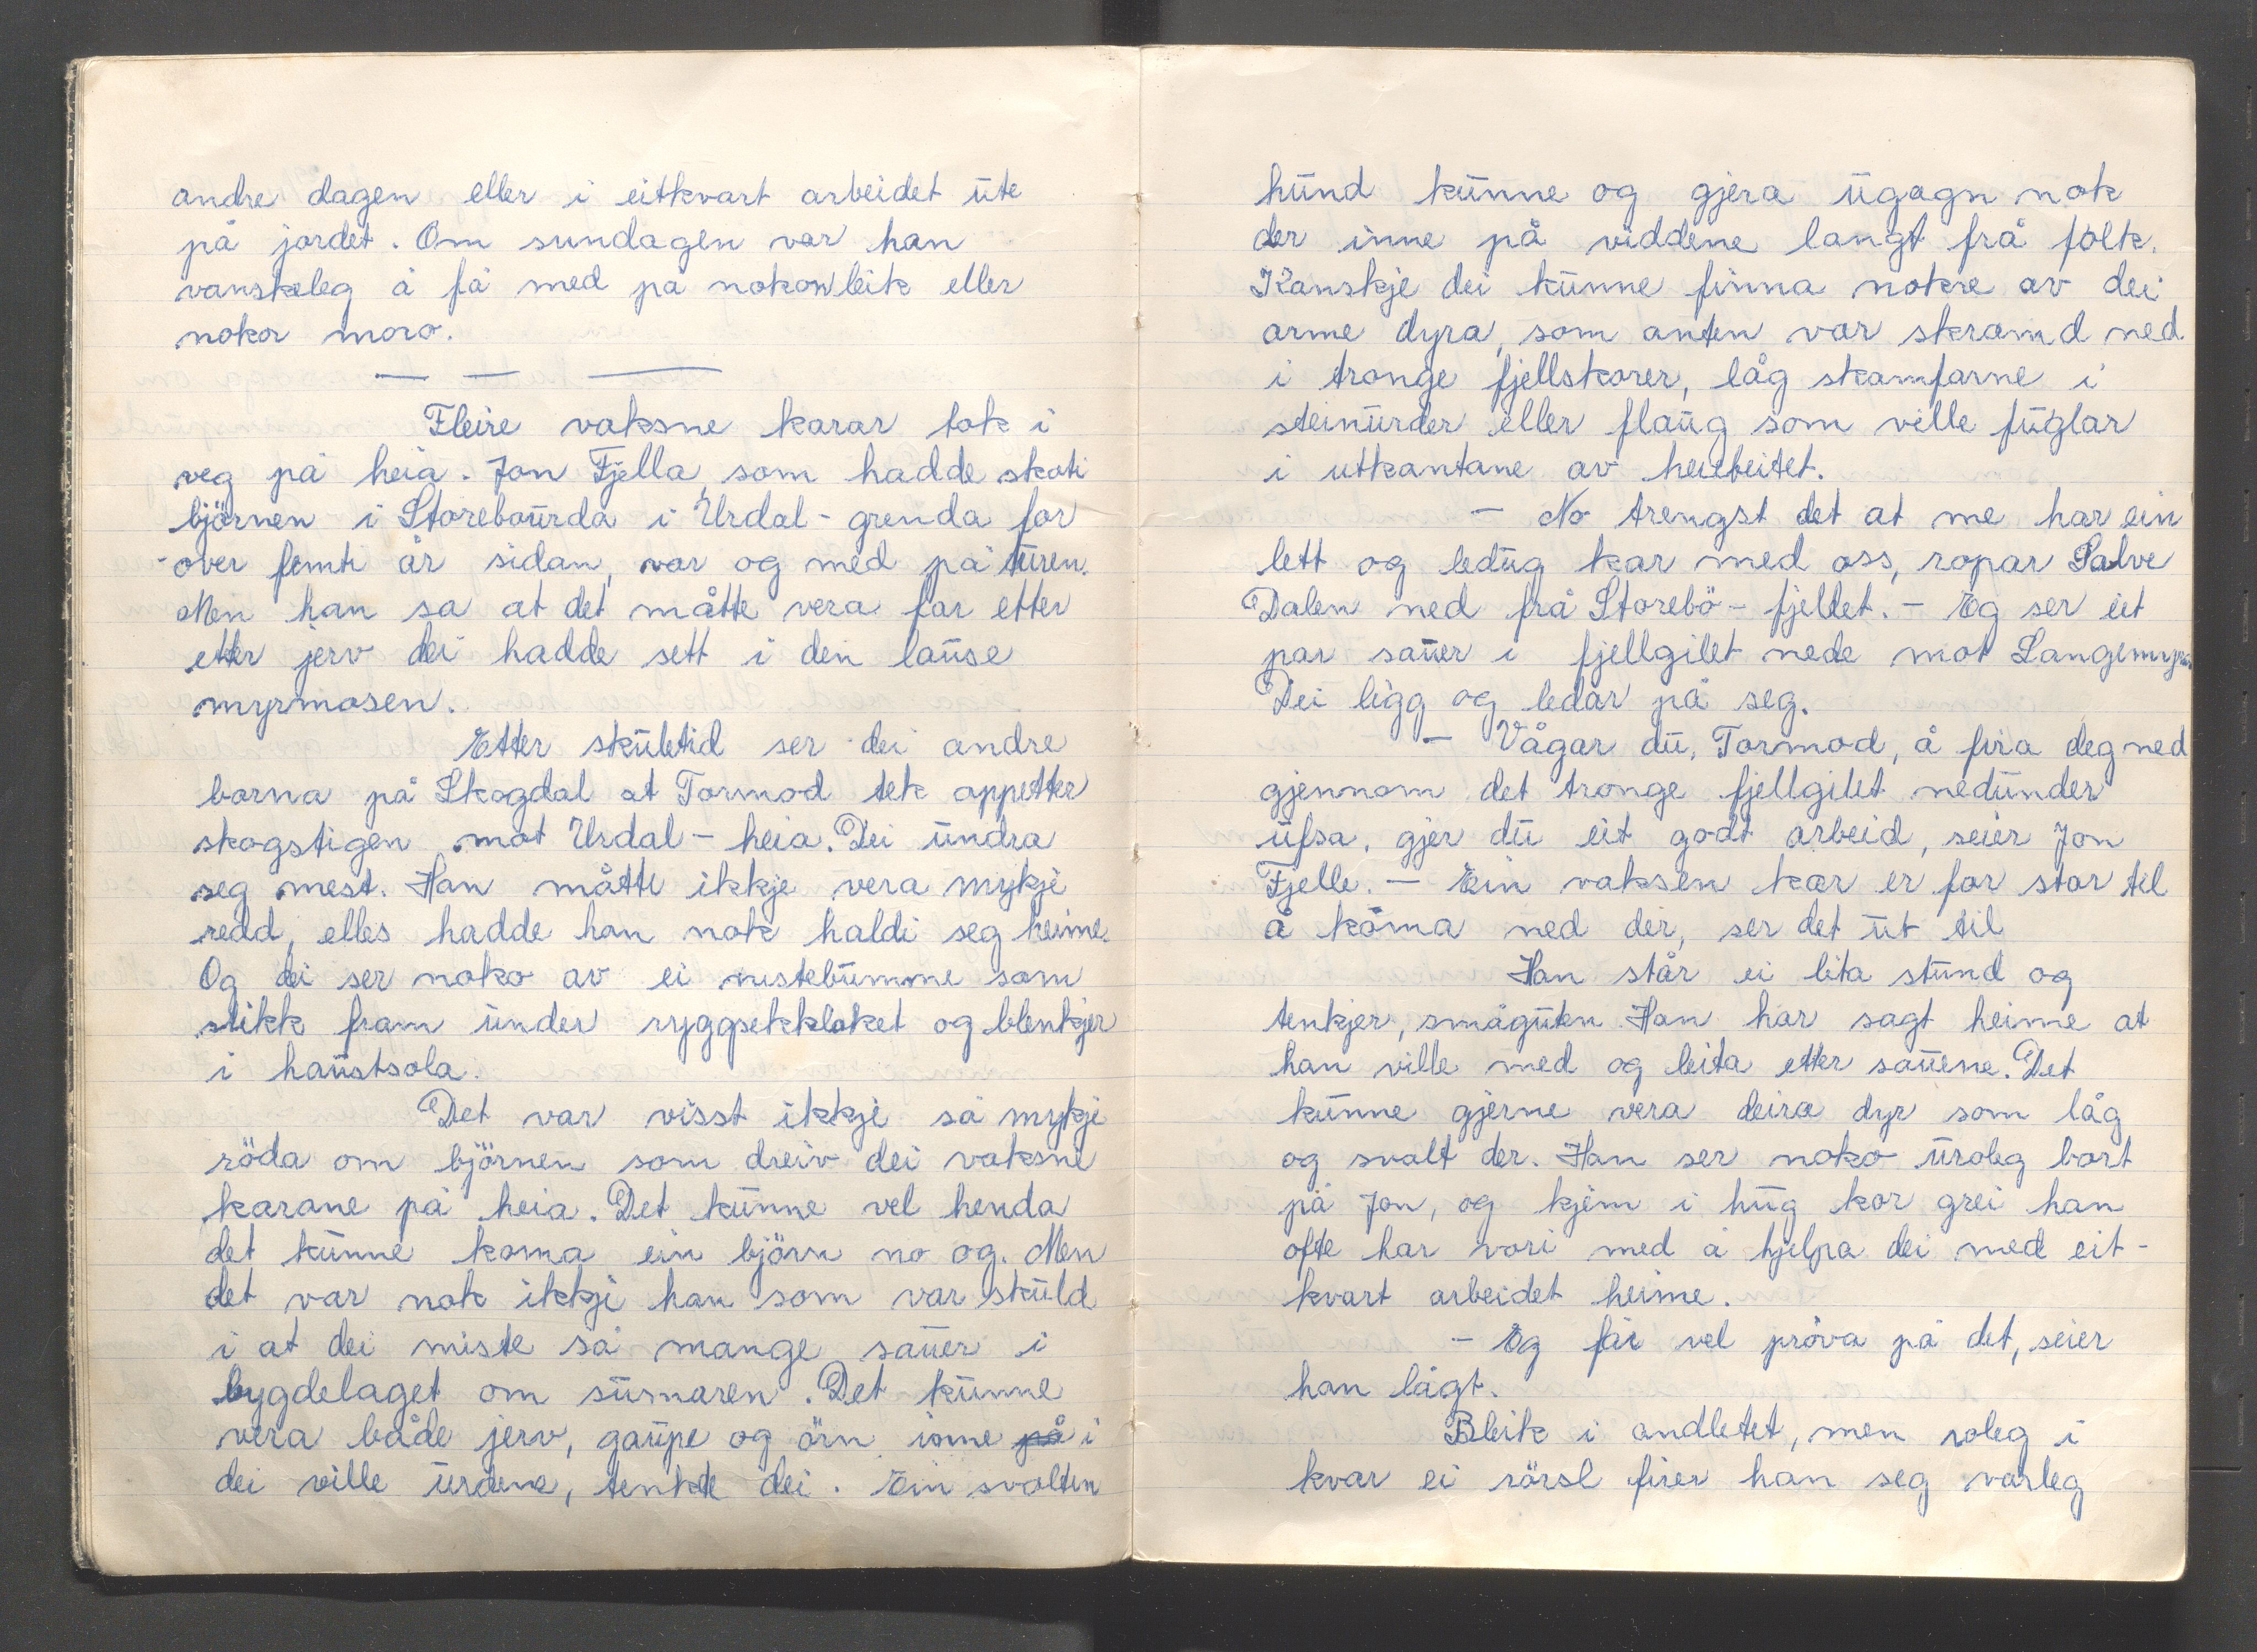 andre dagen eller i eitkvart arbeidet ute
på jordet. Om sundagen var han
vanskeleg å få med på nokon leik eller
nokor moro.
— — —
Fleire vaksne karar tok i
veg på heia. Jon Fjella, som hadde skoti
björnen i Storebourda i Urdal-grenda for
over femti år sidan, var og med på turen.
Men han sa at det måtte vera far etter
etter jerv dei hadde sett i den lause
myrmosen.
Etter skuletid ser dei andre
borna på Skogdal at Tormod tek oppetter
skogstigen mot Urdal-heia. Dei undra
seg mest. Han måtte ikkje vera mykje
redd, elles hadde han nok haldi seg heime.
Og dei ser noko av ei nistebumme som
stikk fram under ryggsekkloket og blenkjer
i haustsola.
Det var visst ikkje så mykje
röda om björnen som dreiv dei vaksne
karane på heia. Det kunne vel henda
det kunne koma ein björn no og. Men
det var nok ikkje han som var skuld
i at dei miste så mange sauer i
bygdelaget om sumaren. Det kunne
vera både jerv, gaupe og örn inne på i
dei ville urdene, tenkte dei. Ein svolten
hund kunne og gjera ugagn nok
der inne på viddene langt frå folk.
Kanskje dei kunne finna nokre av dei
arme dyra, som anten var skramd ned
i tronge fjellskorer, låg skamfarne i
steinurder eller flaug som ville fuglar
i utkantane av heiebeitet.
— No trengst det at me har ein
lett og ledug kar med oss, ropar Salve
Dalen ned frå Storebö-fjellet. — Eg ser eit
par sauer i fjellgilet nede mot Langemyra.
Dei ligg og ledar på seg.
— Vågar du, Tormod, å fira deg ned
gjennom det tronge fjellgilet nedunder
ufsa, gjer du eit godt arbeid, seier Jon
Fjelle. — Ein vaksen kar er for stor til
å koma ned der, ser det ut til
Han står ei lita stund og
tenkjer, småguten. Han har sagt heime at
han ville med og leita etter sauene. Det
kunne gjerne vera deira dyr som låg
og svalt der. Han ser noko uroleg bort
på Jon, og kjem i hug kor grei han
ofte har vori med å hjelpa dei med eit-
kvart arbeidet heime.
— Eg får vel pröva på det, seier
han lågt.
Bleik i andletet, men roleg i
kvar ei rörsl firer han seg varleg